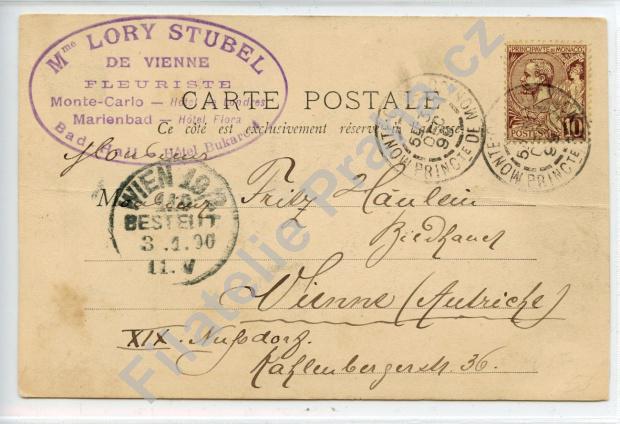 Mme LORY STUBEL
DE VIENNE
FLEURISTE
Monte-Carlo — Hôtel de Londres
Marienbad — Hôtel Flora
Bad Hall — Hôtel Bukarest
PRINCIPAUTÉ DE MONACO
POSTES
10
CARTE POSTALE
Ce côté est exclusivement réservé
MONTE
PRINCTE DE MON
MONTE
PRINCTE
Monsieur
Fritz
WIEN 19/2
BESTELLT
3.1.90
11.V
Vienne (Autriche)
XIX. Nußdorf
Kahlenbergerstr. 36.
Filatelie Praha.cz